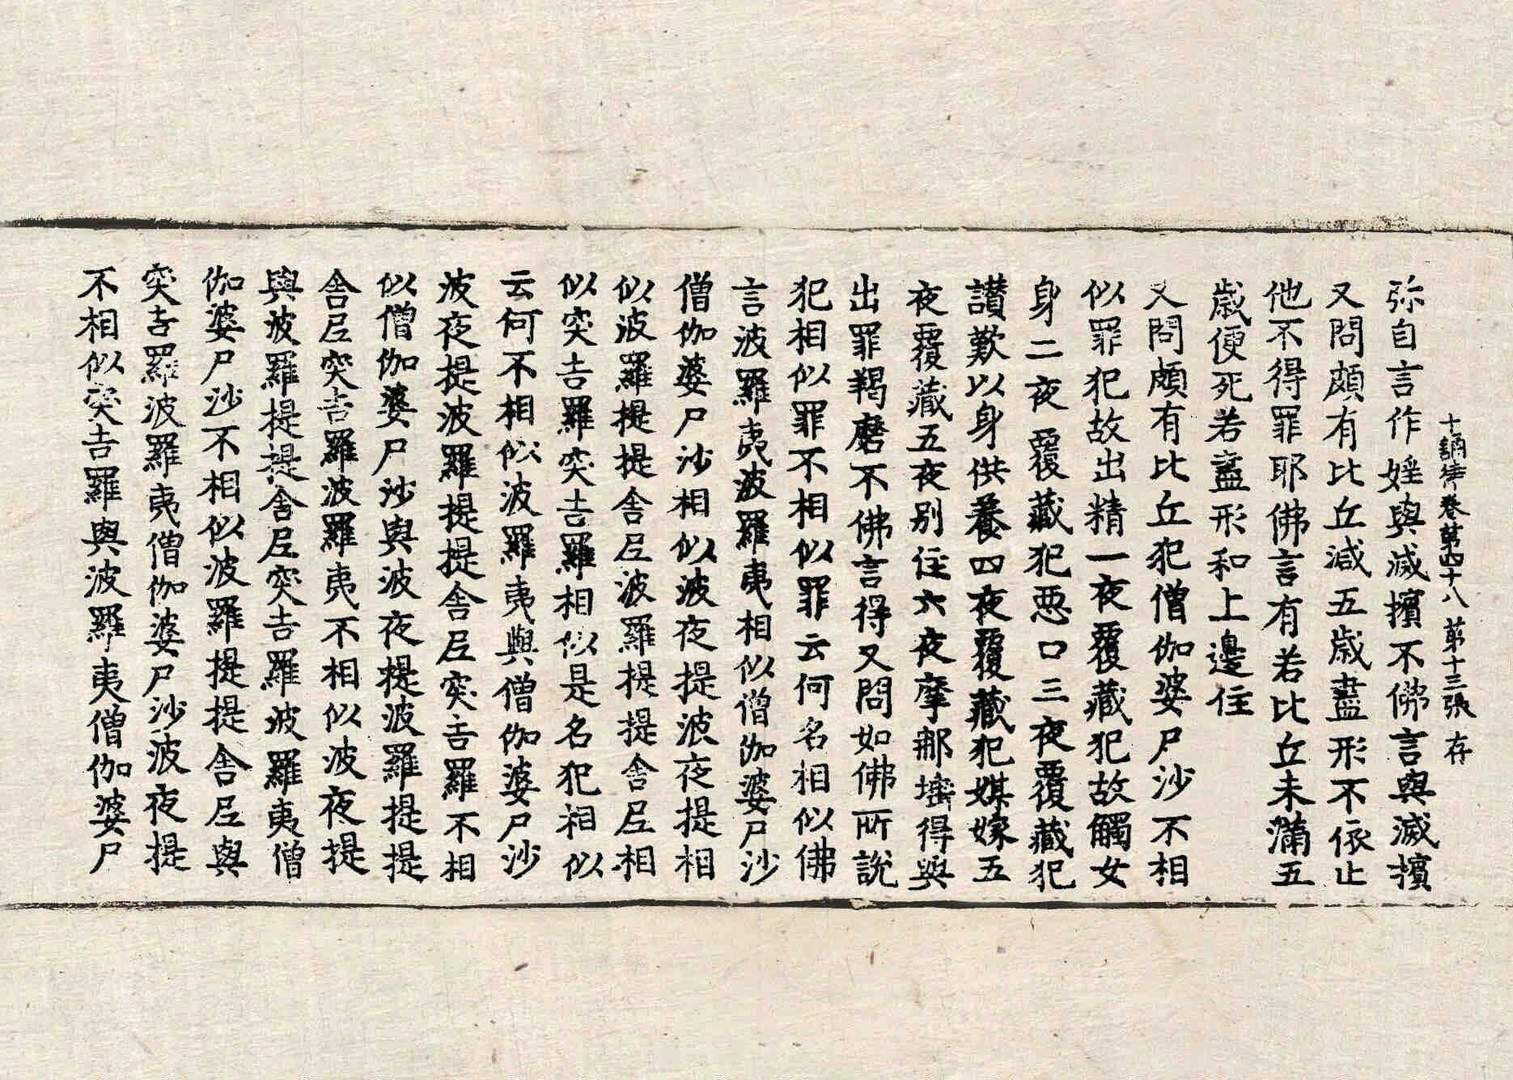 十誦律卷第四十八 第十三張 存
弥自言作婬與滅擯不佛言與滅擯
又問頗有比丘减五歳盡形不依止
他不得罪耶佛言有若比丘未滿五
歳便死若盡形和上邊住
又問頗有比丘犯僧伽婆尸沙不相
似罪犯故出精一夜覆藏犯故觸女
身二夜覆藏犯惡口三夜覆藏犯
讃歎以身供養四夜覆藏犯媒嫁五
夜覆藏五夜别住六夜摩那埵得與
出罪羯磨不佛言得又問如佛所說
犯相似罪不相似罪云何名相似佛
言波羅夷波羅夷相似僧伽婆尸沙
僧伽婆尸沙相似波夜提波夜提相
似波羅提提舍尼波羅提提舍尼相
似突吉羅突吉羅相似是名犯相似
云何不相似波羅夷與僧伽婆尸沙
波夜提波羅提提舍尼突吉羅不相
似僧伽婆尸沙與波夜提波羅提提
舍尼突吉羅波羅夷不相似波夜提
與波羅提提舍尼突吉羅波羅夷僧
伽婆尸沙不相似波羅提提舍尼與
突吉羅波羅夷僧伽婆尸沙波夜提
不相似突吉羅與波羅夷僧伽婆尸